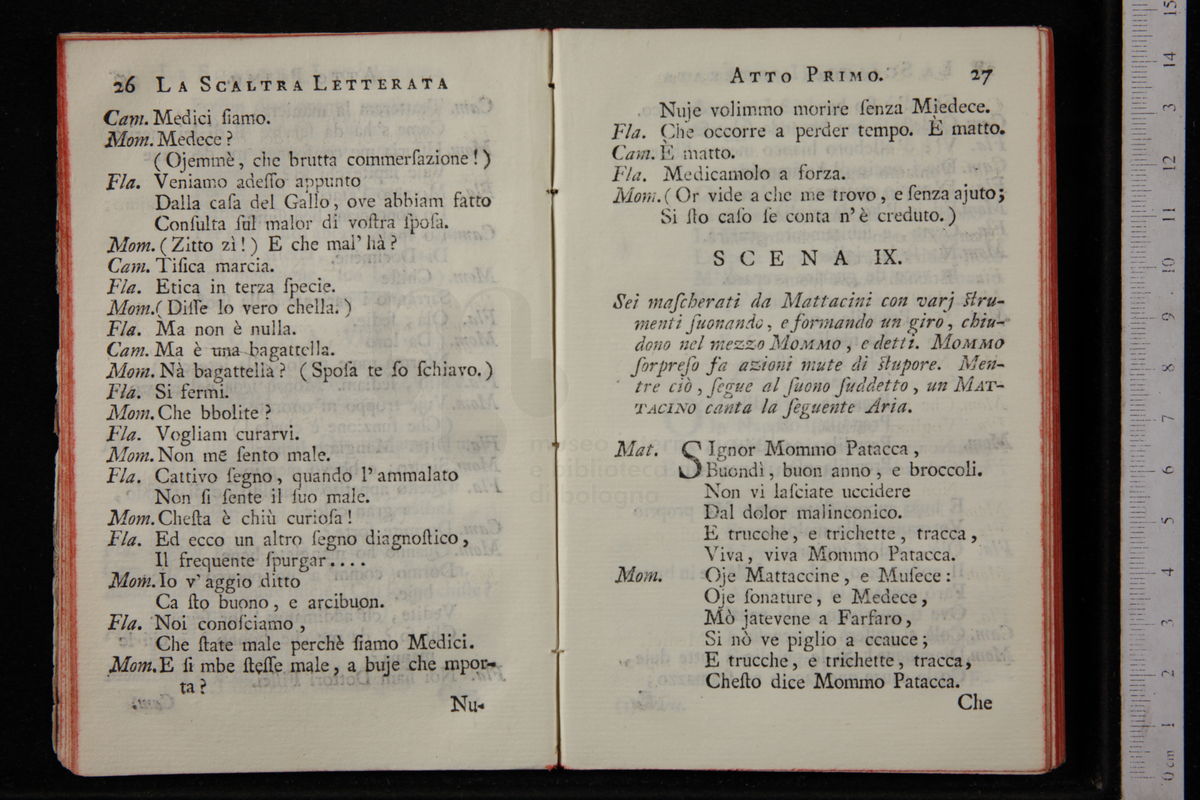 26 LA SCALTRA LETTERATA
Cam. Medici ſiamo.
Mom. Medece?
(Ojemmè, che brutta commerſazione!)
Fla. Veniamo adeſſo appunto
Dalla caſa del Gallo, ove abbiam fatto
Conſulta ſul malor di voſtra ſpoſa.
Mom. (Zitto zì!) E che mal' hà?
Cam. Tiſica marcia.
Fla. Etica in terza ſpecie.
Mom. (Diſſe lo vero chella.)
Fla. Ma non è nulla.
Cam. Ma è una bagattella.
Mom. Nà bagattella? (Spoſa te ſo ſchiavo.)
Fla. Si fermi.
Mom. Che bbolite?
Fla. Vogliam curarvi.
Mom. Non me ſento male.
Fla. Cattivo ſegno, quando l' ammalato
Non ſi ſente il ſuo male.
Mom. Cheſta è chiù curioſa!
Fla. Ed ecco un altro ſegno diagnoſtico,
Il frequente ſpurgar....
Mom. Io v' aggio ditto
Ca ſto buono, e arcibuon.
Fla. Noi conoſciamo,
Che ſtate male perchè ſiamo Medici.
Mom. E ſi mbe ſteſſe male, a buje che mpor-
ta?
Nu-
ATTO PRIMO. 27
Nuje volimmo morire ſenza Miedece.
Fla. Che occorre a perder tempo. È matto.
Cam. È matto.
Fla. Medicamolo a forza.
Mom. (Or vide a che me trovo, e ſenza ajuto;
Si ſto caſo ſe conta n' è creduto.)
SCENA IX.
Sei maſcherati da Mattacini con varj ſtru-
menti ſuonando, e formando un giro, chiu-
dono nel mezzo MOMMO, e detti. MOMMO
ſorpreſo fa azioni mute di ſtupore. Men-
tre ciò, ſegue al ſuono ſuddetto, un MAT-
TACINO canta la ſeguente Aria.
Mat. SIgnor Mommo Patacca,
Buondì, buon anno, e broccoli.
Non vi laſciate uccidere
Dal dolor malinconico.
E trucche, e trichette, tracca,
Viva, viva Mommo Patacca.
Mom. Oje Mattaccine, e Muſece:
Oje ſonature, e Medece,
Mò jatevene a Farfaro,
Si nò ve piglio a ccauce;
E trucche, e trichette, tracca,
Cheſto dice Mommo Patacca.
Che